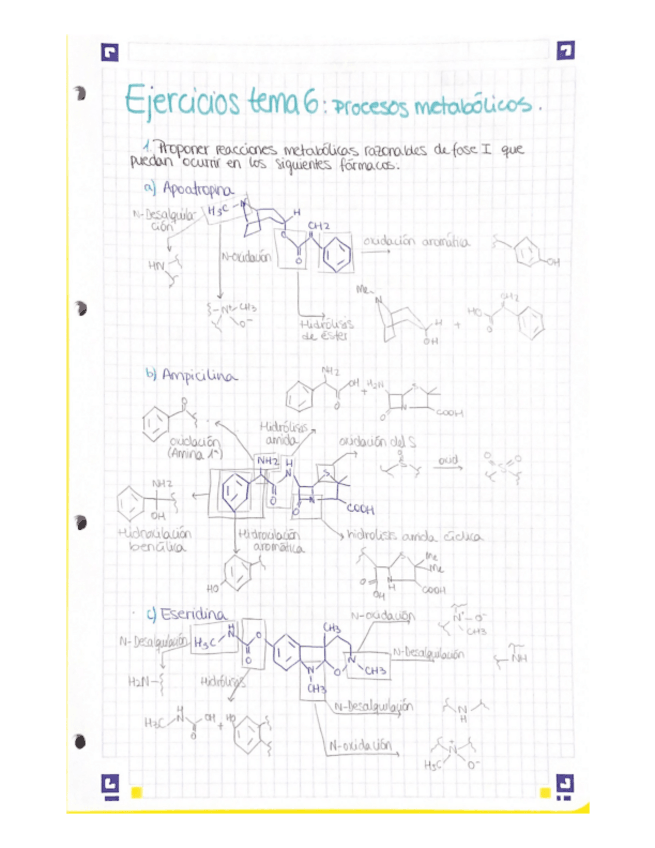 Ejercicios tema 6: procesos metabólicos.
1. Proponer reacciones metabólicas razonables de fase I que
puedan ocurrir en los siguientes fármacos.
a) Apoatropina
N-Desalquila-
ción
H3C-N
H
CH2
O
O
oxidación aromática
OH
HN
N-oxidación
N+-CH3
O-
Hidrólisis
de éster
Me
N
H
OH
+
HO
O
CH2
b) Ampicilina
NH2
OH
O
+
H2N
S
N
O
COOH
O
oxidación
(Amina 1ª)
Hidrólisis
amida
oxidación del S
O
S
oxid
O
O
S
NH2
H
N
O
S
N
O
COOH
NH2
OH
Hidroxilación
bencílica
Hidroxilación
aromática
HO
hidrolisis amida cíclica
S
Me
Me
O
OH
N
H
COOH
c) Eseridina
N-oxidación
N+-O-
CH3
N-Desalquilación
H3C
H
N
O
O
CH3
N
CH3
O
N
CH3
N-Desalquilación
NH
H2N
Hidrólisis
N-Desalquilación
N
H
H3C
H
N
OH
O
+
HO
N-oxidación
N+
H3C
O-